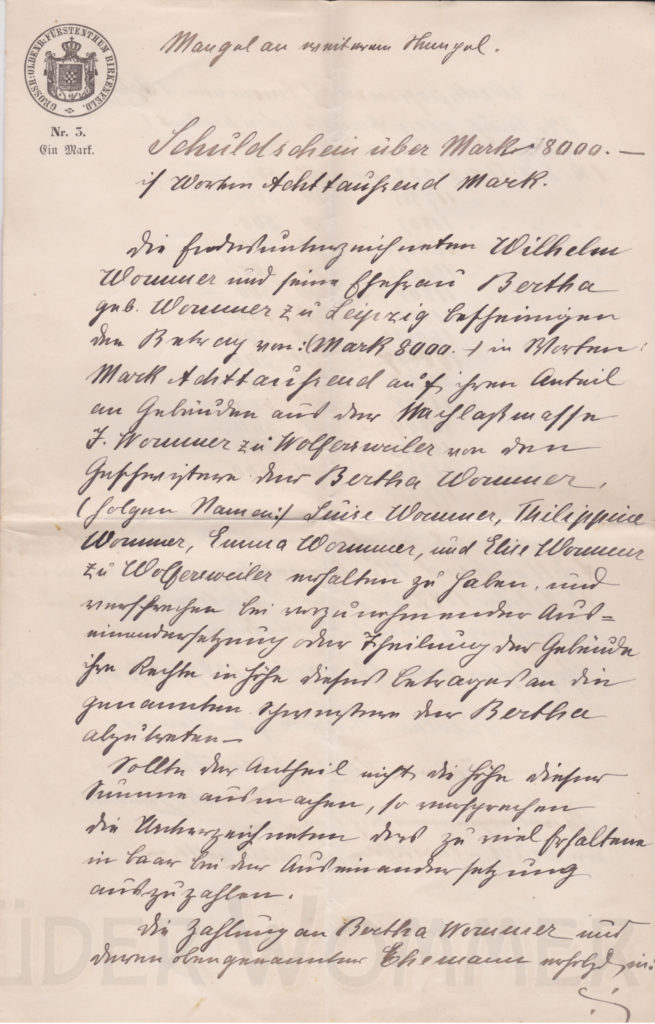 GROSSH: OLDENB: FÜRSTENTHUM BIRKENFELD.
Nr. 3.
Ein Mark.
Mangel an weiterem Stempel.
Schuldschein über Mark 8000.—
i/ Worten Achttausend Mark.
Die Endesunterzeichneten Wilhelm
Wommer und seine Ehefrau Bertha
geb. Wommer zu Leipzig bescheinigen
den Betrag von :(Mark 8000.-) in Worten:
Mark Achttausend auf ihren Anteil
an Gebäuden aus der Nachlaßmasse
J. Wommer zu Wolfersweiler von den
Geschwistern der Bertha Wommer,
(folgen Namen:) Luise Wommer, Philippine
Wommer, Emma Wommer, und Elise Wommer
zu Wolfersweiler erhalten zu haben, und
versprechen bei vorzunehmender Aus=
einandersetzung oder Theilung der Gebäude
ihre Rechte in Höhe dieses Betrages an die
genannten Schwestern der Bertha
abzutreten—
Sollte der Antheil nicht die Höhe dieser
Summe ausmachen, so versprechen
die Unterzeichneten das zu viel Erhaltene
in baar bei der Auseinandersetzung
auszuzahlen.
Die Zahlung an Bertha Wommer und
deren obengenannter Ehemann erfolgt in:
ÜDER WOMMER